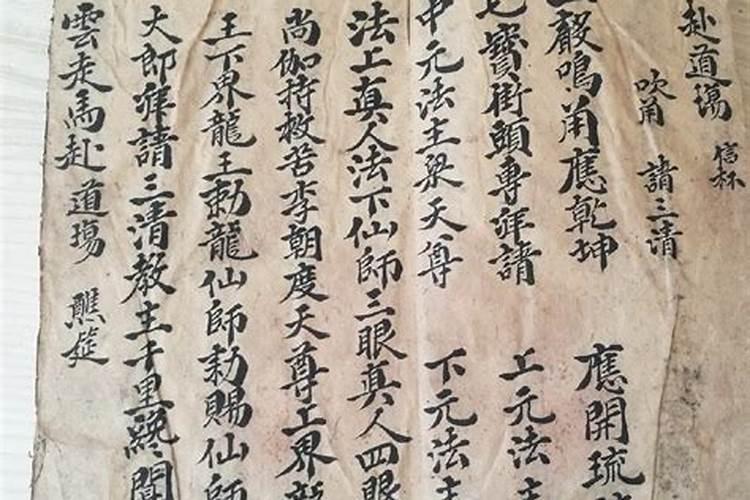 赴道塲 信杯
吹角 請三清
聲鳴角應乾坤 應開琉
七寳街頭專拜請 上元法主
中元法主梁天尊 下元法主
法上真人法下仙師三眼真人四眼
尚伽持救苦李朝度天尊上界龍
王下界龍王勅龍仙師勅賜仙師
大郎拜請三清教主千里終聞
雲走馬赴道塲 醮筵